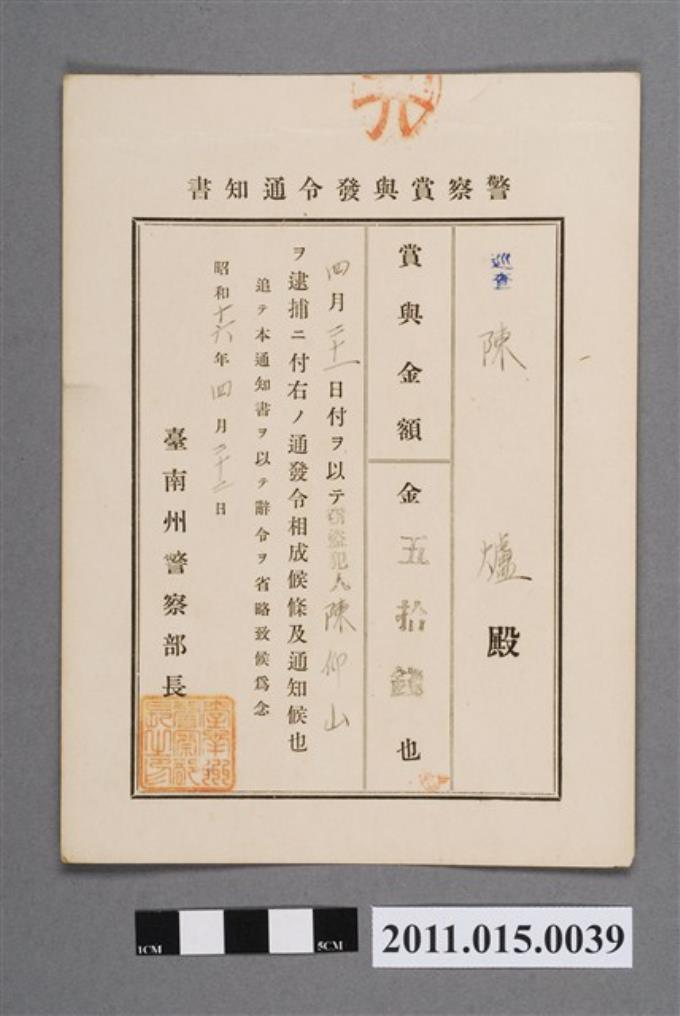 警察賞與發令通知書
巡查 陳 爐 殿
賞與金額 金五拾錢也
四月二十一日付ヲ以テ窃盜犯人陳仰山
ヲ逮捕ニ付右ノ通發令相成候條及通知候也
追テ本通知書ヲ以テ辭令ヲ省略致候爲念
昭和十六年四月二十二日
臺南州警察部長
1CM
5CM
2011.015.0039